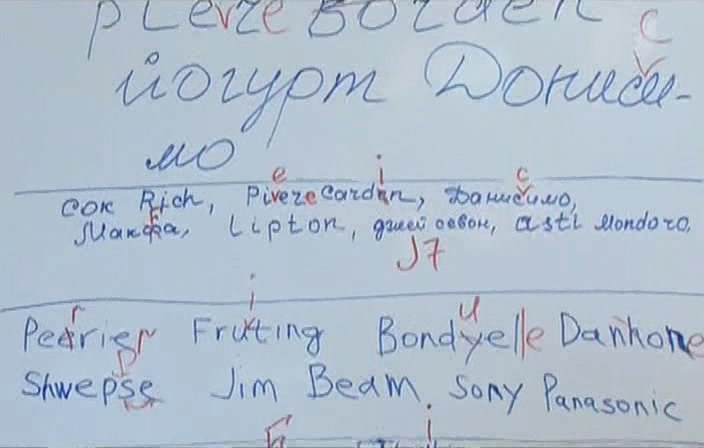 йогурт Дониси-
мо
сок Rich, Pivere Cardan, Данисимо,
Макфа, Lipton, джей севен, asti Mondoro,
J7
Pearrier Fruting Bondyelle Danhone
Shwepse Jim Beam. Sony Panasonic